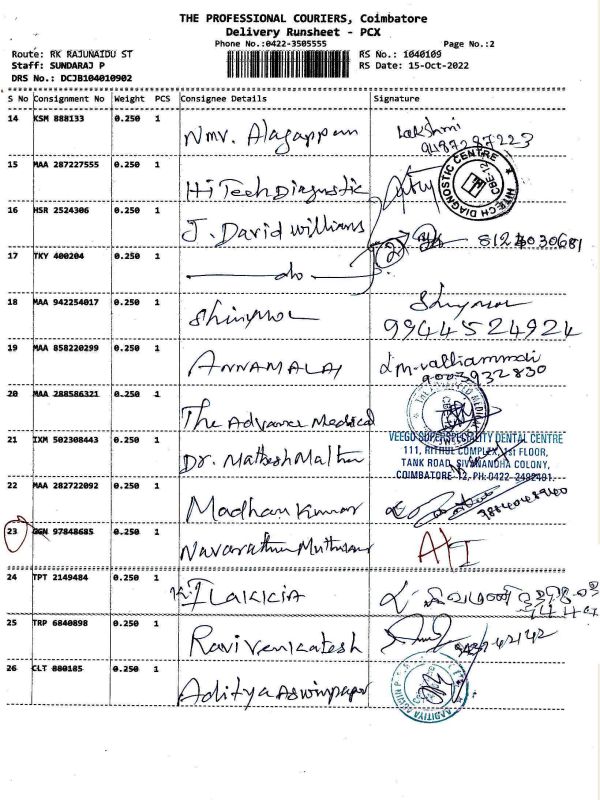 THE PROFESSIONAL COURIERS, Coimbatore
Delivery Runsheet - PCX
Phone No.:0422-3505555 Page No.:2
Route: RK RAJUNAIDU ST RS No.: 1040109
Staff: SUNDARAJ P RS Date: 15-Oct-2022
DRS No.: DCJB104010902
S No Consignment No Weight PCS Consignee Details Signature
14 KSM 888133 0.250 1 Nmv. Alagappan Lakshmi
9487297223
15 MAA 287227555 0.250 1 HiTech Diagnostic
HITECH DIAGNOSTIC CENTRE CBE-12
16 HSR 2524306 0.250 1 J. David williams
17 TKY 400204 0.250 1 do (2)
18 MAA 942254017 0.250 1 Shinymol Shinymol
9944524924
19 MAA 858220299 0.250 1 ANNAMALAI L.M-valliammai
9003932830
20 MAA 288586321 0.250 1 The Advance Medical
21 IXM 502308443 0.250 1 Dr.
VEEGO SUPERSPECIALITY DENTAL CENTRE
111, RITHUL COMPLEX, 1st FLOOR,
TANK ROAD, SIVANANDHA COLONY,
COIMBATORE-12, PH:0422-2492401.
22 MAA 282722092 0.250 1 Madhan Kumar
23 GGN 97848685 0.250 1
24 TPT 2149484 0.250 1 ILAKKIA
25 TRP 6840898 0.250 1 Ravi Venkatesh
26 CLT 880185 0.250 1 Aditya